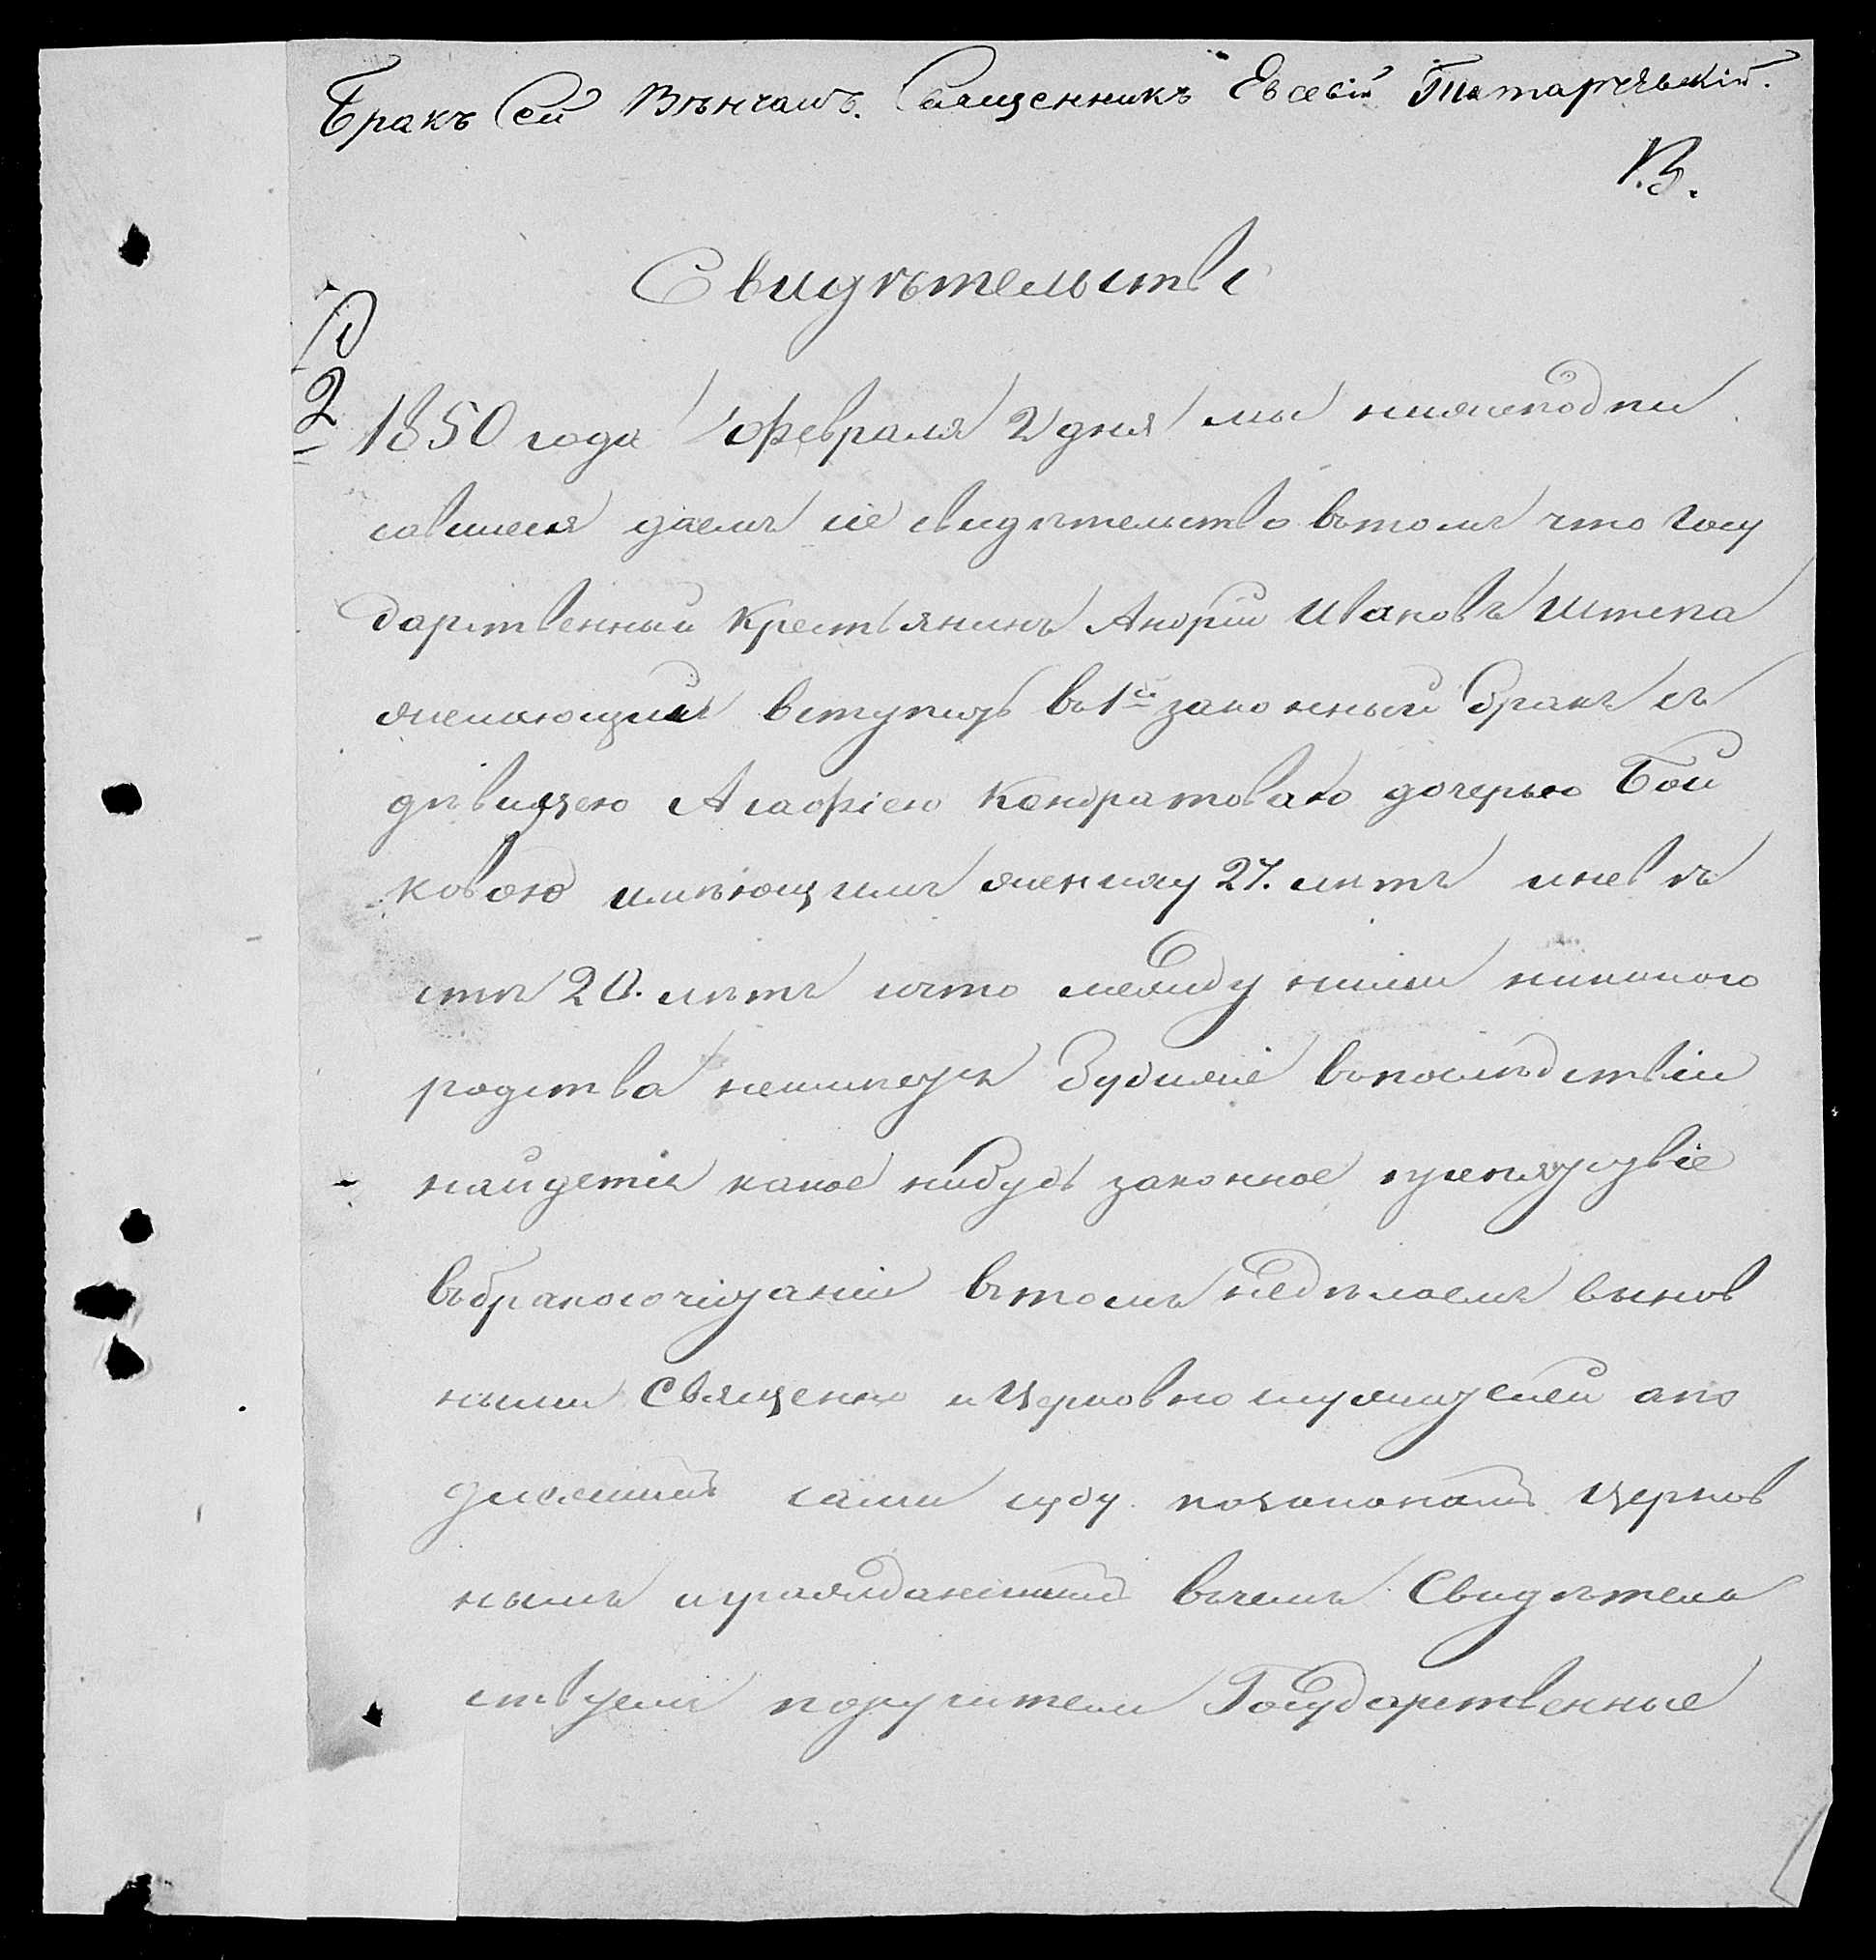 Бракъ Сей Вѣнчалъ. Священникъ Евсевій Татаревскій.
В.
Свидѣтельство
10
2
1850 года февраля 2 дня мы нижеподпи
савшіеся даемъ сіе свидѣтельство вътомъ что Госу
дарственный Крестьянинъ Андрій Ивановъ Штепа
желающій вступить въ 1й законный бракъ съ
дѣвицею Агафіею Кондратовою дочерью Бой
ковою имѣющимъ жениху 27. лѣтъ иневѣ
стѣ 20. лѣтъ ичто между ними никакого
родства неимѣется Будиже въпослѣдствіи
найдется какое нибудь законное препятствіе
въбракосочитаніи втомъ недѣлаемъ винов
ными Священно и Церковно служителей апо
длежимъ сами суду позаконамъ Церков
нымъ игражданскимъ въчемъ Свидѣтель
ствуемъ поручители Государственные